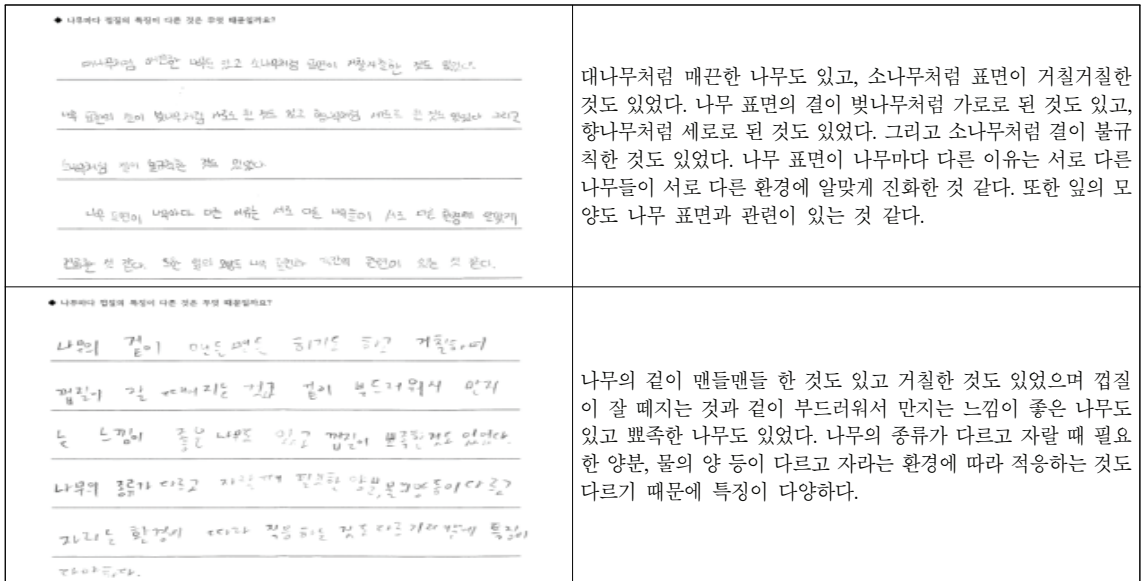 ◆ 나무마다 껍질의 특징이 다른 것은 무엇 때문일까요?
대나무처럼 매끈한 나무도 있고 소나무처럼 표면이 거칠거칠한 것도 있었다.
나무 표면의 결이 벚나무처럼 가로로 된 것도 있고 향나무처럼 세로로 된 것도 있었다 그리고
소나무처럼 결이 불규칙한 것도 있었다
나무 표면이 나무마다 다른 이유는 서로 다른 나무들이 서로 다른 환경에 알맞게
진화한 것 같다. 또한 잎의 모양도 나무 표면과 관련이 있는 것 같다.
대나무처럼 매끈한 나무도 있고, 소나무처럼 표면이 거칠거칠한
것도 있었다. 나무 표면의 결이 벚나무처럼 가로로 된 것도 있고,
향나무처럼 세로로 된 것도 있었다. 그리고 소나무처럼 결이 불규
칙한 것도 있었다. 나무 표면이 나무마다 다른 이유는 서로 다른
나무들이 서로 다른 환경에 알맞게 진화한 것 같다. 또한 잎의 모
양도 나무 표면과 관련이 있는 것 같다.
◆ 나무마다 껍질의 특징이 다른 것은 무엇 때문일까요?
나무의 겉이 맨들맨들 하기도 하고 거칠하며
껍질이 잘 떼지는 것과 겉이 부드러워서 만지
는 느낌이 좋은 나무도 있고 껍질이 뾰족한것도 있었다.
나무의 종류가 다르고 자랄 때 필요한 양분,물의양 등이 다르고
자라는 환경에 따라 적응하는 것도 다르기 때문에 특징이
다양하다.
나무의 겉이 맨들맨들 한 것도 있고 거칠한 것도 있었으며 껍질
이 잘 떼지는 것과 겉이 부드러워서 만지는 느낌이 좋은 나무도
있고 뾰족한 나무도 있었다. 나무의 종류가 다르고 자랄 때 필요
한 양분, 물의 양 등이 다르고 자라는 환경에 따라 적응하는 것도
다르기 때문에 특징이 다양하다.